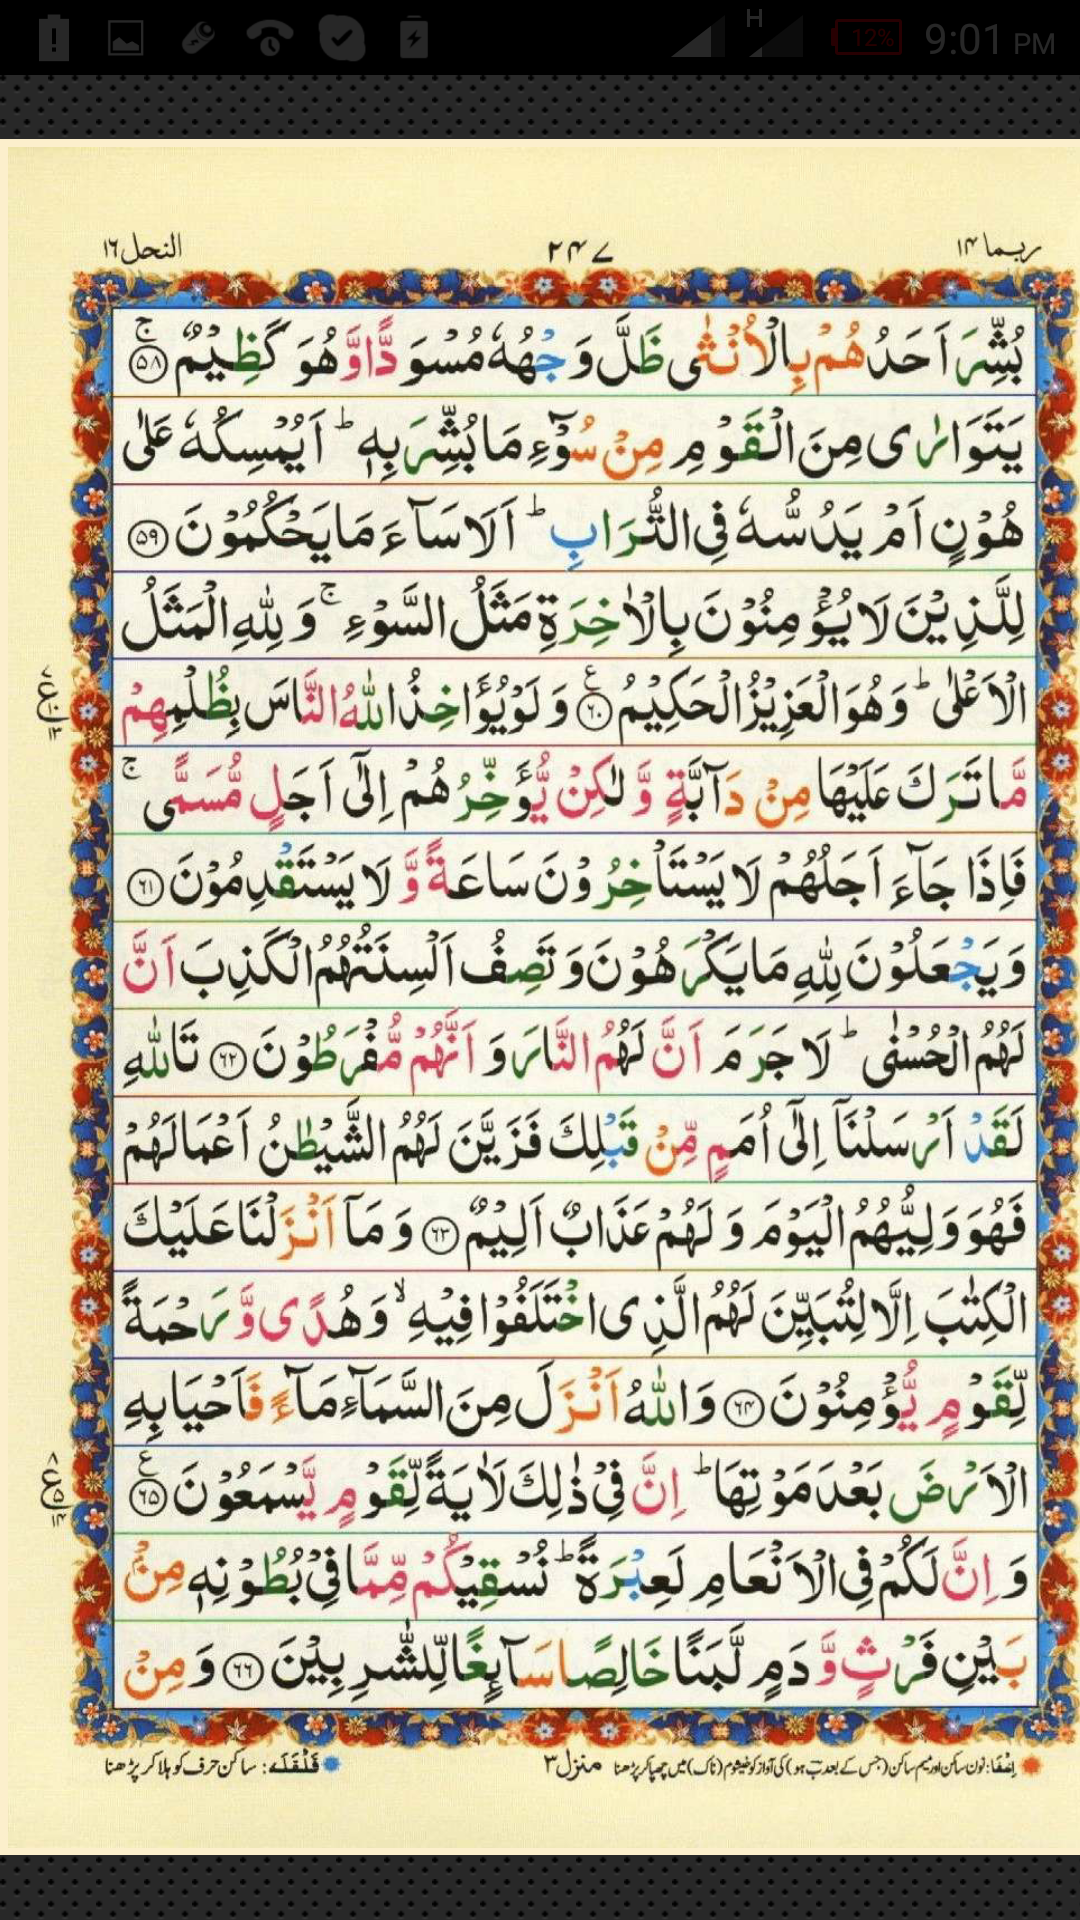 H 12% 9:01 PM
ربما ۱۴ ۲۴۷ النحل ۱۶
بُشِّرَ اَحَدُهُمْ بِالْاُنْثٰى ظَلَّ وَجْهُهٗ مُسْوَدًّا وَّهُوَ كَظِيْمٌ ۚ ﴿۵۸﴾
يَتَوَارٰى مِنَ الْقَوْمِ مِنْ سُوْٓءِ مَا بُشِّرَ بِهٖ ؕ اَيُمْسِكُهٗ عَلٰى
هُوْنٍ اَمْ يَدُسُّهٗ فِى التُّرَابِ ؕ اَلَا سَآءَ مَا يَحْكُمُوْنَ ﴿۵۹﴾
لِلَّذِيْنَ لَا يُؤْمِنُوْنَ بِالْاٰخِرَةِ مَثَلُ السَّوْءِ ۚ وَلِلّٰهِ الْمَثَلُ
الْاَعْلٰى ؕ وَهُوَ الْعَزِيْزُ الْحَكِيْمُ ﴿۶۰﴾ ع وَلَوْ يُؤَاخِذُ اللّٰهُ النَّاسَ بِظُلْمِهِمْ
ع ۱۰ ۱۳
مَّا تَرَكَ عَلَيْهَا مِنْ دَآبَّةٍ وَّلٰكِنْ يُّؤَخِّرُهُمْ اِلٰٓى اَجَلٍ مُّسَمًّى ۚ
فَاِذَا جَآءَ اَجَلُهُمْ لَا يَسْتَاْخِرُوْنَ سَاعَةً وَّلَا يَسْتَقْدِمُوْنَ ﴿۶۱﴾
وَيَجْعَلُوْنَ لِلّٰهِ مَا يَكْرَهُوْنَ وَتَصِفُ اَلْسِنَتُهُمُ الْكَذِبَ اَنَّ
لَهُمُ الْحُسْنٰى ؕ لَا جَرَمَ اَنَّ لَهُمُ النَّارَ وَاَنَّهُمْ مُّفْرَطُوْنَ ﴿۶۲﴾ تَاللّٰهِ
لَقَدْ اَرْسَلْنَآ اِلٰٓى اُمَمٍ مِّنْ قَبْلِكَ فَزَيَّنَ لَهُمُ الشَّيْطٰنُ اَعْمَالَهُمْ
فَهُوَ وَلِيُّهُمُ الْيَوْمَ وَلَهُمْ عَذَابٌ اَلِيْمٌ ﴿۶۳﴾ وَمَآ اَنْزَلْنَا عَلَيْكَ
الْكِتٰبَ اِلَّا لِتُبَيِّنَ لَهُمُ الَّذِى اخْتَلَفُوْا فِيْهِ ۙ وَهُدًى وَّرَحْمَةً
لِّقَوْمٍ يُّؤْمِنُوْنَ ﴿۶۴﴾ وَاللّٰهُ اَنْزَلَ مِنَ السَّمَآءِ مَآءً فَاَحْيَا بِهِ
الْاَرْضَ بَعْدَ مَوْتِهَا ؕ اِنَّ فِىْ ذٰلِكَ لَاٰيَةً لِّقَوْمٍ يَّسْمَعُوْنَ ﴿۶۵﴾ ع
ع ۵ ۱۴
وَاِنَّ لَكُمْ فِى الْاَنْعَامِ لَعِبْرَةً ؕ نُسْقِيْكُمْ مِّمَّا فِىْ بُطُوْنِهٖ مِنْۢ
بَيْنِ فَرْثٍ وَّدَمٍ لَّبَنًا خَالِصًا سَآئِغًا لِّلشّٰرِبِيْنَ ﴿۶۶﴾ وَمِنْ
اِخفَا: نون ساکن اور میم ساکن (جس کے بعد بَ ہو) کی آواز کو خیشوم (ناک) میں چھپا کر پڑھنا منزل ۳ قَلْقَلَہ: ساکن حرف کو ہلا کر پڑھنا